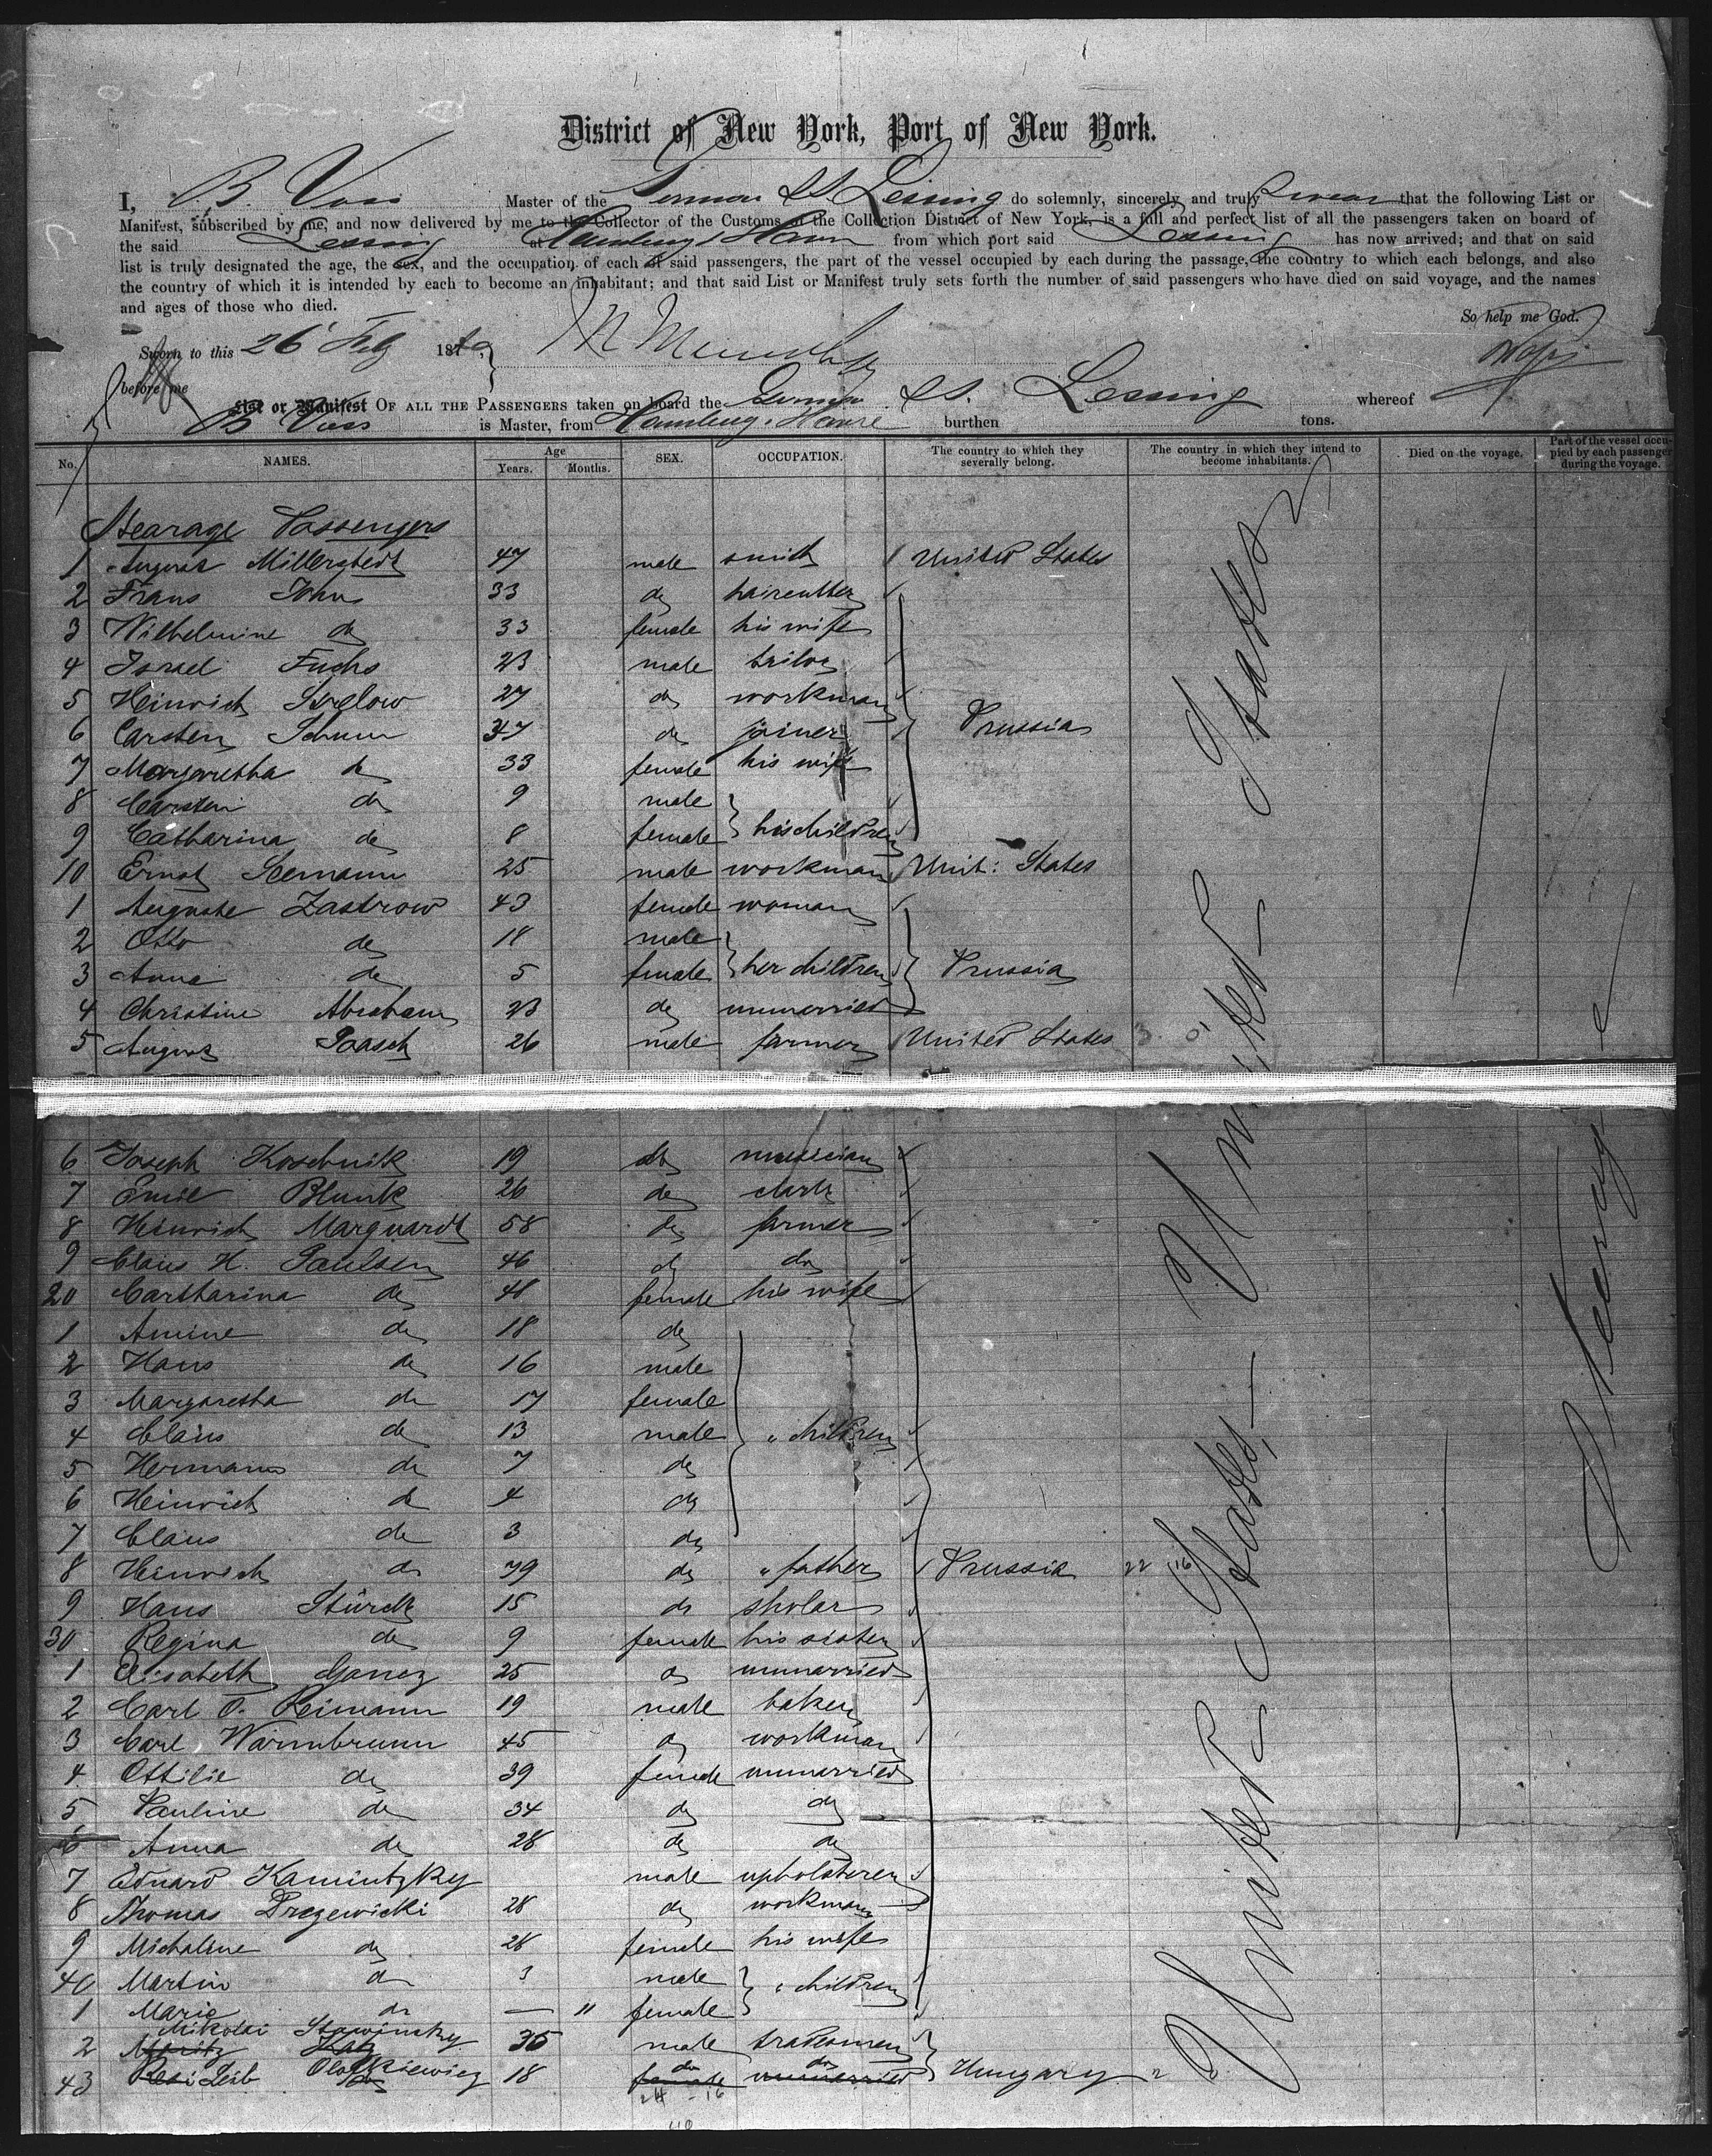 District of New York, Port of New York.
I, B. Voss Master of the German SS Lessing do solemnly, sincerely and truly swear that the following List or
Manifest, subscribed by me, and now delivered by me to the Collector of the Customs of the Collection District of New York, is a full and perfect list of all the passengers taken on board of
the said Lessing at Hamburg & Havre from which port said Lessing has now arrived; and that on said
list is truly designated the age, the sex, and the occupation of each of said passengers, the part of the vessel occupied by each during the passage, the country to which each belongs, and also
the country of which it is intended by each to become an inhabitant; and that said List or Manifest truly sets forth the number of said passengers who have died on said voyage, and the names
and ages of those who died.
So help me God.
Sworn to this 26 Feb 187
before me
List or Manifest OF ALL THE PASSENGERS taken on board the German SS. Lessing whereof
B Voss is Master, from Hamburg & Havre burthen tons.
No. NAMES. Age Years. Months. SEX. OCCUPATION. The country to which they severally belong. The country in which they intend to become inhabitants. Died on the voyage. Part of the vessel occupied by each passenger during the voyage.
Stearage Passengers
1 August Millerstedt 47 male smith United States
2 Frans John 33 do haircutter
3 Wilhelmine do 33 female his wife
4 Israel Fuchs 23 male tailor
5 Heinrich Strelow 27 do workman
6 Carsten Schum 37 do joiner Prussia
7 Margaretha do 33 female his wife
8 Carsten do 9 male
9 Catharina do 8 female his children
10 Ernst Seemann 25 male workman Unit: States
1 Auguste Zastrow 43 female woman
2 Otto do 18 male
3 Anna do 5 female her children Prussia
4 Christine Abraham 23 do unmarried
5 August Paasch 26 male farmer United States
6 Joseph Koschnik 19 do musician
7 Emil Blunk 26 do clark
8 Heinrich Marquardt 58 do farmer
9 Claus H. Paulsen 46 do do
20 Cartharina do 48 female his wife
1 Amine do 18 do
2 Hans do 16 male
3 Margaretha do 17 female
4 Claus do 13 male " children
5 Hermann do 7 do
6 Heinrich do 4 do
7 Claus do 3 do
8 Heinrich do 79 do " father Prussia 22 16
9 Hans Stürck 15 do sholar
30 Regina do 9 female his sister
1 Elisabeth Ganez 25 do unmarried
2 Carl O. Reimann 19 male baker
3 Carl Warmbrunn 45 do workman
4 Ottilie do 39 female unmarried
5 Pauline do 34 do do
6 Anna do 28 do do
7 Eduard Kamintzky male upholsterer
8 Thomas Przewicki 28 do workman
9 Michaline do 28 female his wife
40 Martin do 3 male " children
1 Marie do — " female
Mikolai Stawinsky
2 Moritz Katz 35 male tradesman
43 Resi Leib Olotkiewicz do 18 female do unmarried do Hungary
24 - 16
United States
United States
Steerage